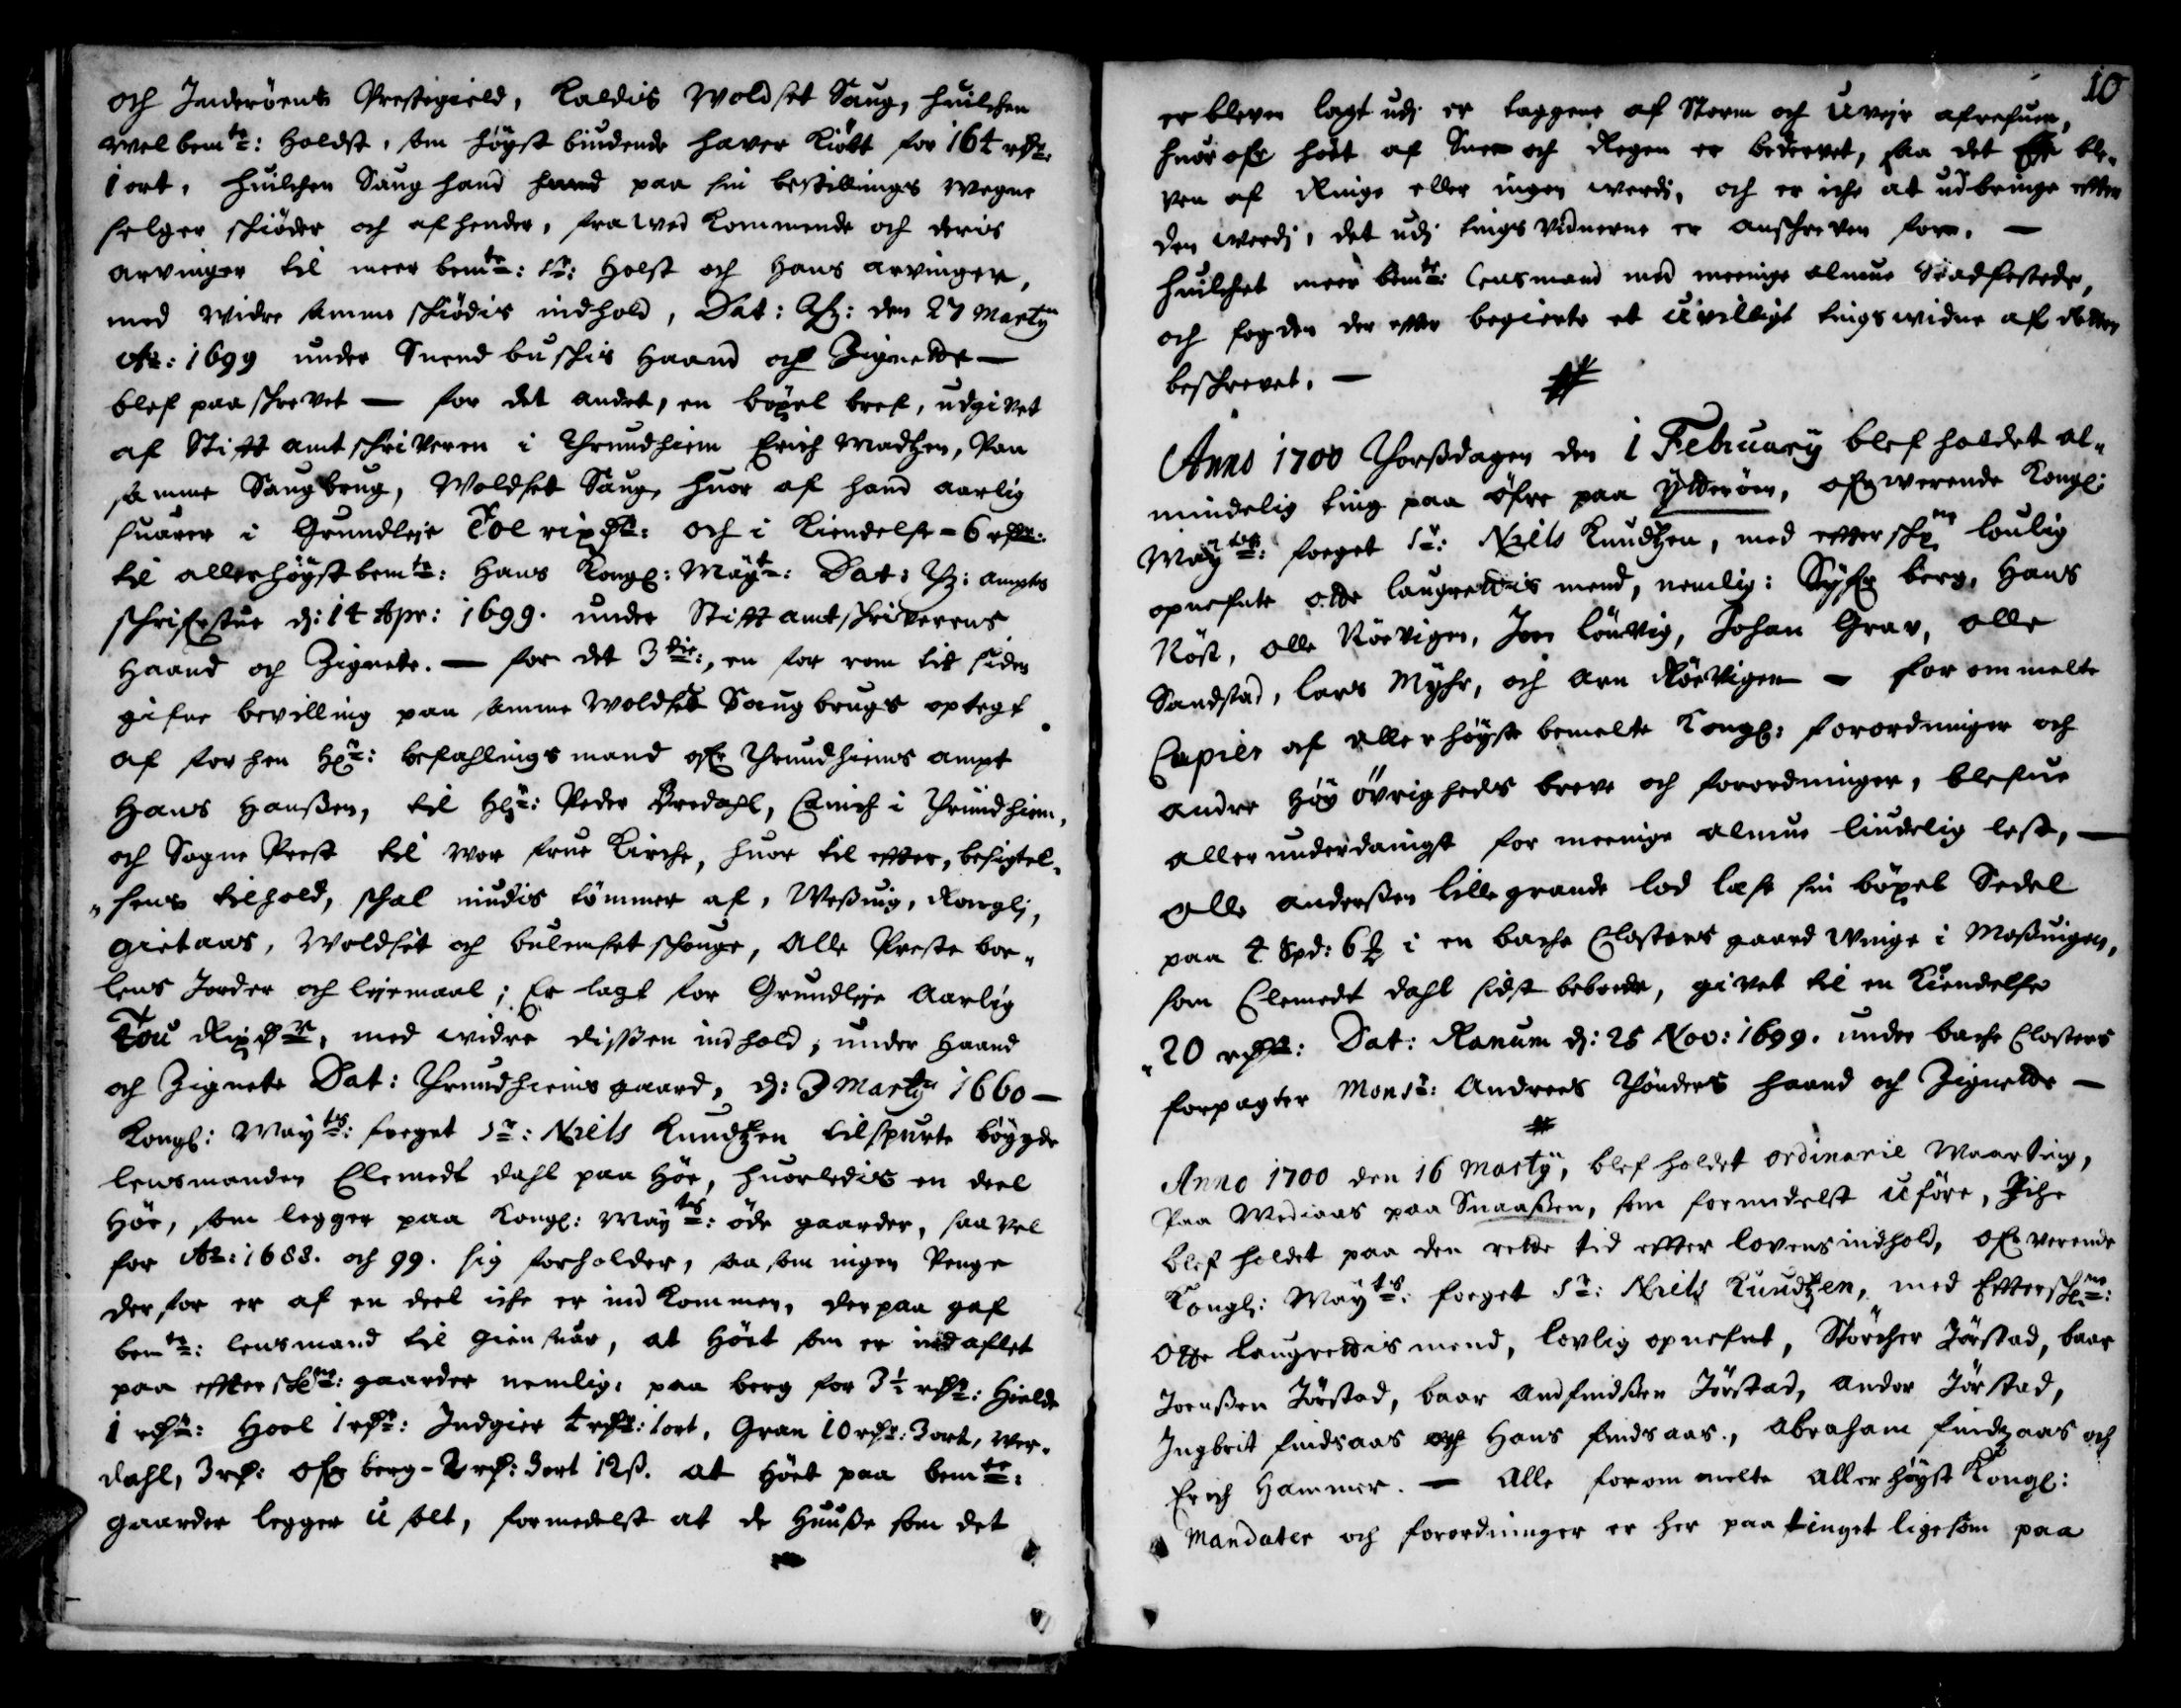 och Inderöens Prestegield, kaldis Woldset Saug, huilchen
welbemte: Holdst, som höyst biudende haver kiöbt for 164 rdr:
1 ort, huilchen Saug hand hand paa sin bestillings wegne
selger schiöder och afhender, fra wed kommende och deris
arvinger til meer bemte: Sr: Holst och hans arvinger,
med widre samme schiödis indhold, Dat: den 27 Marty
Ao: 1699 under Suend buschis Haand och Zignette —
blef paaschrevet — for det andet, en böxel bref, udgivet
af Stift amtschriveren i Thrundhiem Erich Madtzen, paa
samme Saugbrug, Woldset Saug, huor af hand aarlig
suarer i Grundleje Tol rixdr: och i Kiendelse - 6 rdr:
til allerhöyst bemte: Hans Kongl: Maytt: Dat: Th: ampts
schrifestue d: 14 Apr: 1699. under Stift amtschriverens
Haand och Zignete. — for det 3die:, en for rom tid siden
gifne bevilling paa samme Woldset Saugbrugs optegt
af for hen Hr: befahlings mand ofr Thrundhiems ampt
Hans Hanssen, til Hr: Peder Bredahl, Canich i Thrundhiem,
och Sogne Prest til wor frue Kirche, huor til efter, besigtel-
sens tilhold, schal niudis tömmer af, Wessing, Rongli,
gietaas, Woldset och bulemset schouge, Alle Preste bor-
lens Jorder och lejemaal; Er lagt for Grundleje Aarlig
Tou Rixdr, med widre dissen indhold, under Haand
och Zignete Dat: Thrundhiems gaard, d: 3 Marty 1660 —
Kongl: Maytts: foeget Sr: Niels Knudtzen tilspurte böygde
lensmanden Clemedt dahl paa Höe, huorledis en deel
Höe, som legger paa Kongl: Maytts: öde gaarder, saavel
for Ao: 1688. och 99. sig forholder, saa som ingen Penge
der for er af en deel iche er ind kommen, der paa gaf
bemte: lensmand til giensuar, at Höet som er ind aflet
paa efterschne: gaarder nemlig, paa berg for 3½ rdr: Hielde
1 rdr: Hoel 1 rdr: Indgier 4 rdr: 1 ort, Gran 10 rdr: 3 ort, Wer-
dahl, 3 rd: Ofr berg - 2 rd: 3 ort 12 ß. at Höet paa bemte:
gaarder legger u solt, formedelst at de Huusse som det
10
er bleven lagt udj er taggene af Storm och Uvejr afrefuen,
huor ofr Höet af Snee och Regen er bedervet, saa det er ble-
ven af Ringe eller ingen werdi, och er iche at udbringe efter
den werdi, det udj tings vidnerne er anschreven fore. —
Huilchet meer bemte: lensmand med meenige almue Stadfestede,
och fogden der efter begierte et uvilligt tingswidne af Retten
beschrevet. —
Anno 1700 Thorssdagen den 1 February blef holdet al-
mindelig ting paa öfre paa Ytteröen, ofrwerende Kongl:
Maytts: foeget Sr: Niels Knudtzen, med efterschne loulig
opnefnte otte laugrettis mend, nemlig: Syfr berg, Hans
Röst, olle Röevigen, Joen lönvig, Johan Grav, olle
Sandstad, lars Myhr, och Arn Röevigen — forommelte
Copier af allerhöyste bemelte Kongl: forordninger och
andre Höy övrigheds breve och forordninger, blefue
allerunderdanigst for meenige almue liudelig lest, —
Olle anderssen lille grande lod læse sin böxel Sedel
paa 4 Spd: 6 i en bache Closters gaard Winge i Mossuigen,
som Clemedt dahl sidst beboede, givet til en Kiendelse
20 rdr: Dat: Ranum d: 25 Nov: 1699. under bache Closters
forpagter Monsr: Andreas Thönders haand och Zignette —
Anno 1700 den 16 Marty, blef holdet ordinarie Waarting,
Paa Wediaas paa Snaassen, som formedelst u före, Iche
blef holdet paa den rette tid efter lovens indhold, ofr verende
Kongl: Maytts: foeget Sr: Niels Knudtzen, med Efterschne:
otte laugrettis mend, lovlig opnefnt, Störcher Jörstad, baar
Joenssen Jörstad, baar Andfindssen Jörstad, Andor Jörstad,
Ingbrit findsaas och Hans findsaas, Abraham findzaas och
Erich Hammer. — Alle forommelte Allerhöyst Kongl:
Mandater och forordninger er her paa tinget ligesom paa